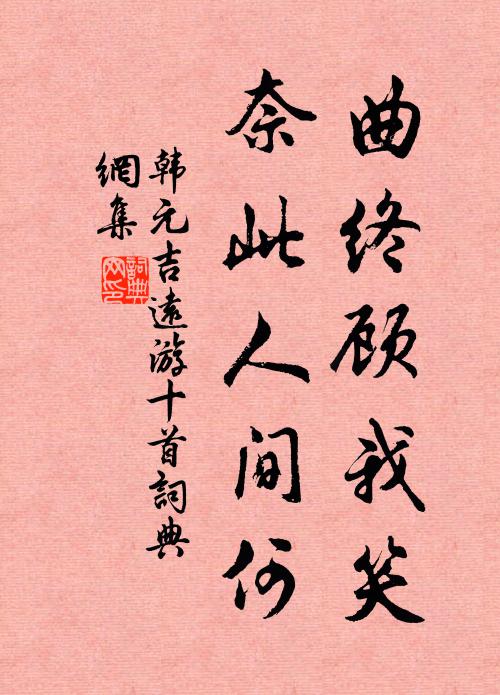 曲终顾我笑
奈此人间何
韩元吉遠游十首詞典
網集
詞典
网印